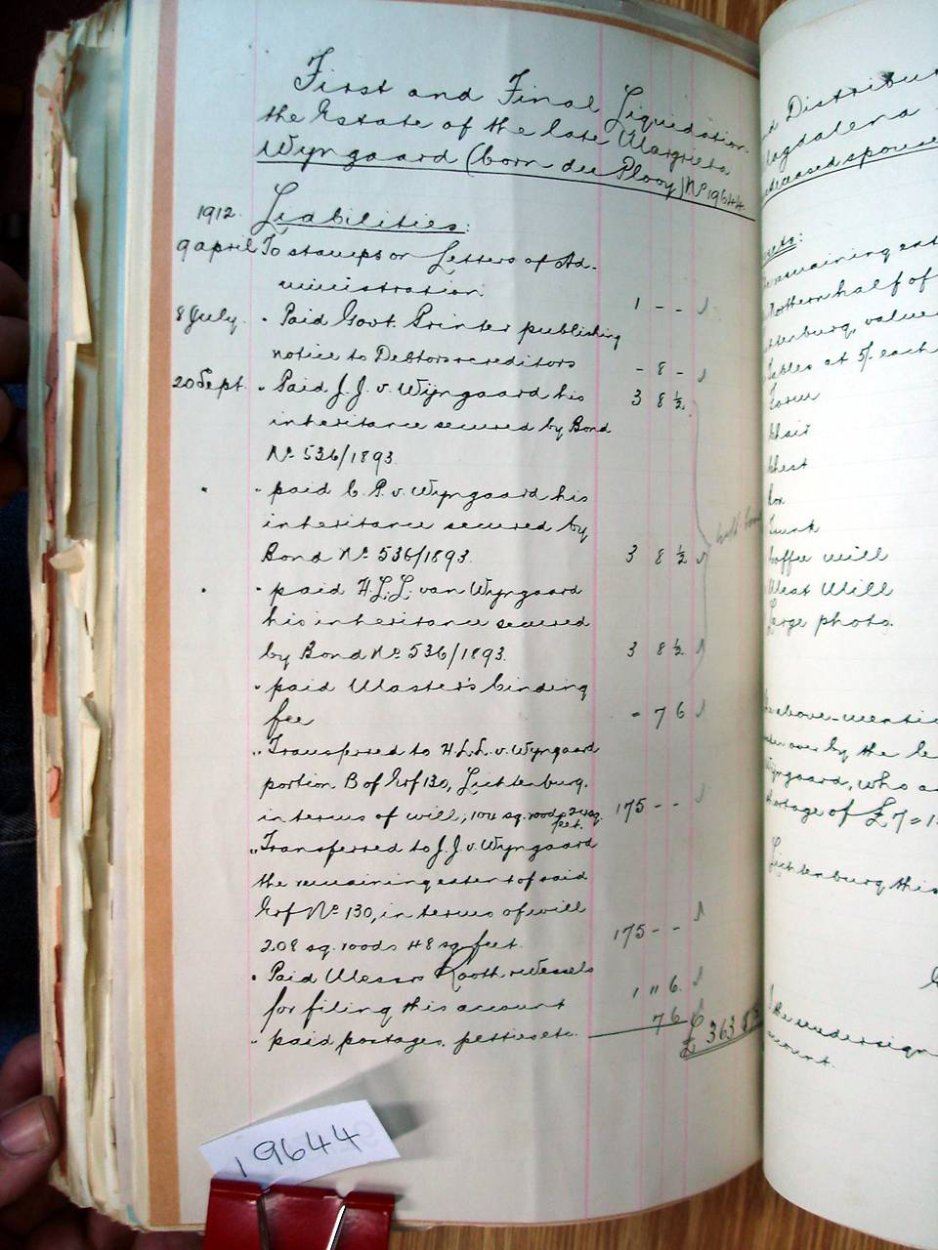 First and Final Liquidation
the Estate of the late Margrieta
Wyngaard (born du Plooy) No 19644
1912. Liabilities:
9 april To stamps on Letters of Ad-
ministration 1 - -
8 July. " Paid Govt. Printer publishing
notice to Debtors & creditors - 8 -
20 Sept. " Paid J.J. v. Wyngaard his 3 8 ½
inheritance secured by Bond
No. 536/1893.
" " paid C.P. v. Wyngaard his
inheritance secured by
Bond No. 536/1893. 3 8 ½
" " paid H.L.L. van Wyngaard
his inheritance secured
by Bond No. 536/1893. 3 8 ½
" paid Master's binding
fee - 7 6
" Transferred to H.L.L. v. Wyngaard
portion B of Erf 130, Lichtenburg.
in terms of will, 104 sq. roods 24 sq. feet. 175 - -
" Transferred to J.J. v. Wyngaard
the remaining extent of said
Erf No. 130, in terms of will
208 sq. roods 48 sq. feet. 175 - -
" Paid Messrs Rooth & Wessels
for filing this account 1 " 6.
" paid postages, petties etc. 7 6
£ 363 8
19644
nd Distribu
agdalena
deceased spouse
ssets:
remaining ext
Northern half of
htenburg, value
Tables at 5/. each
Chair
Chest
Box
Trunk
Coffee mill
Meat Mill
Large photo.
he above-mentio
ken over by the le
Wyngaard, who a
shortage of £7=1
Lichtenburg this
the undersign
account.